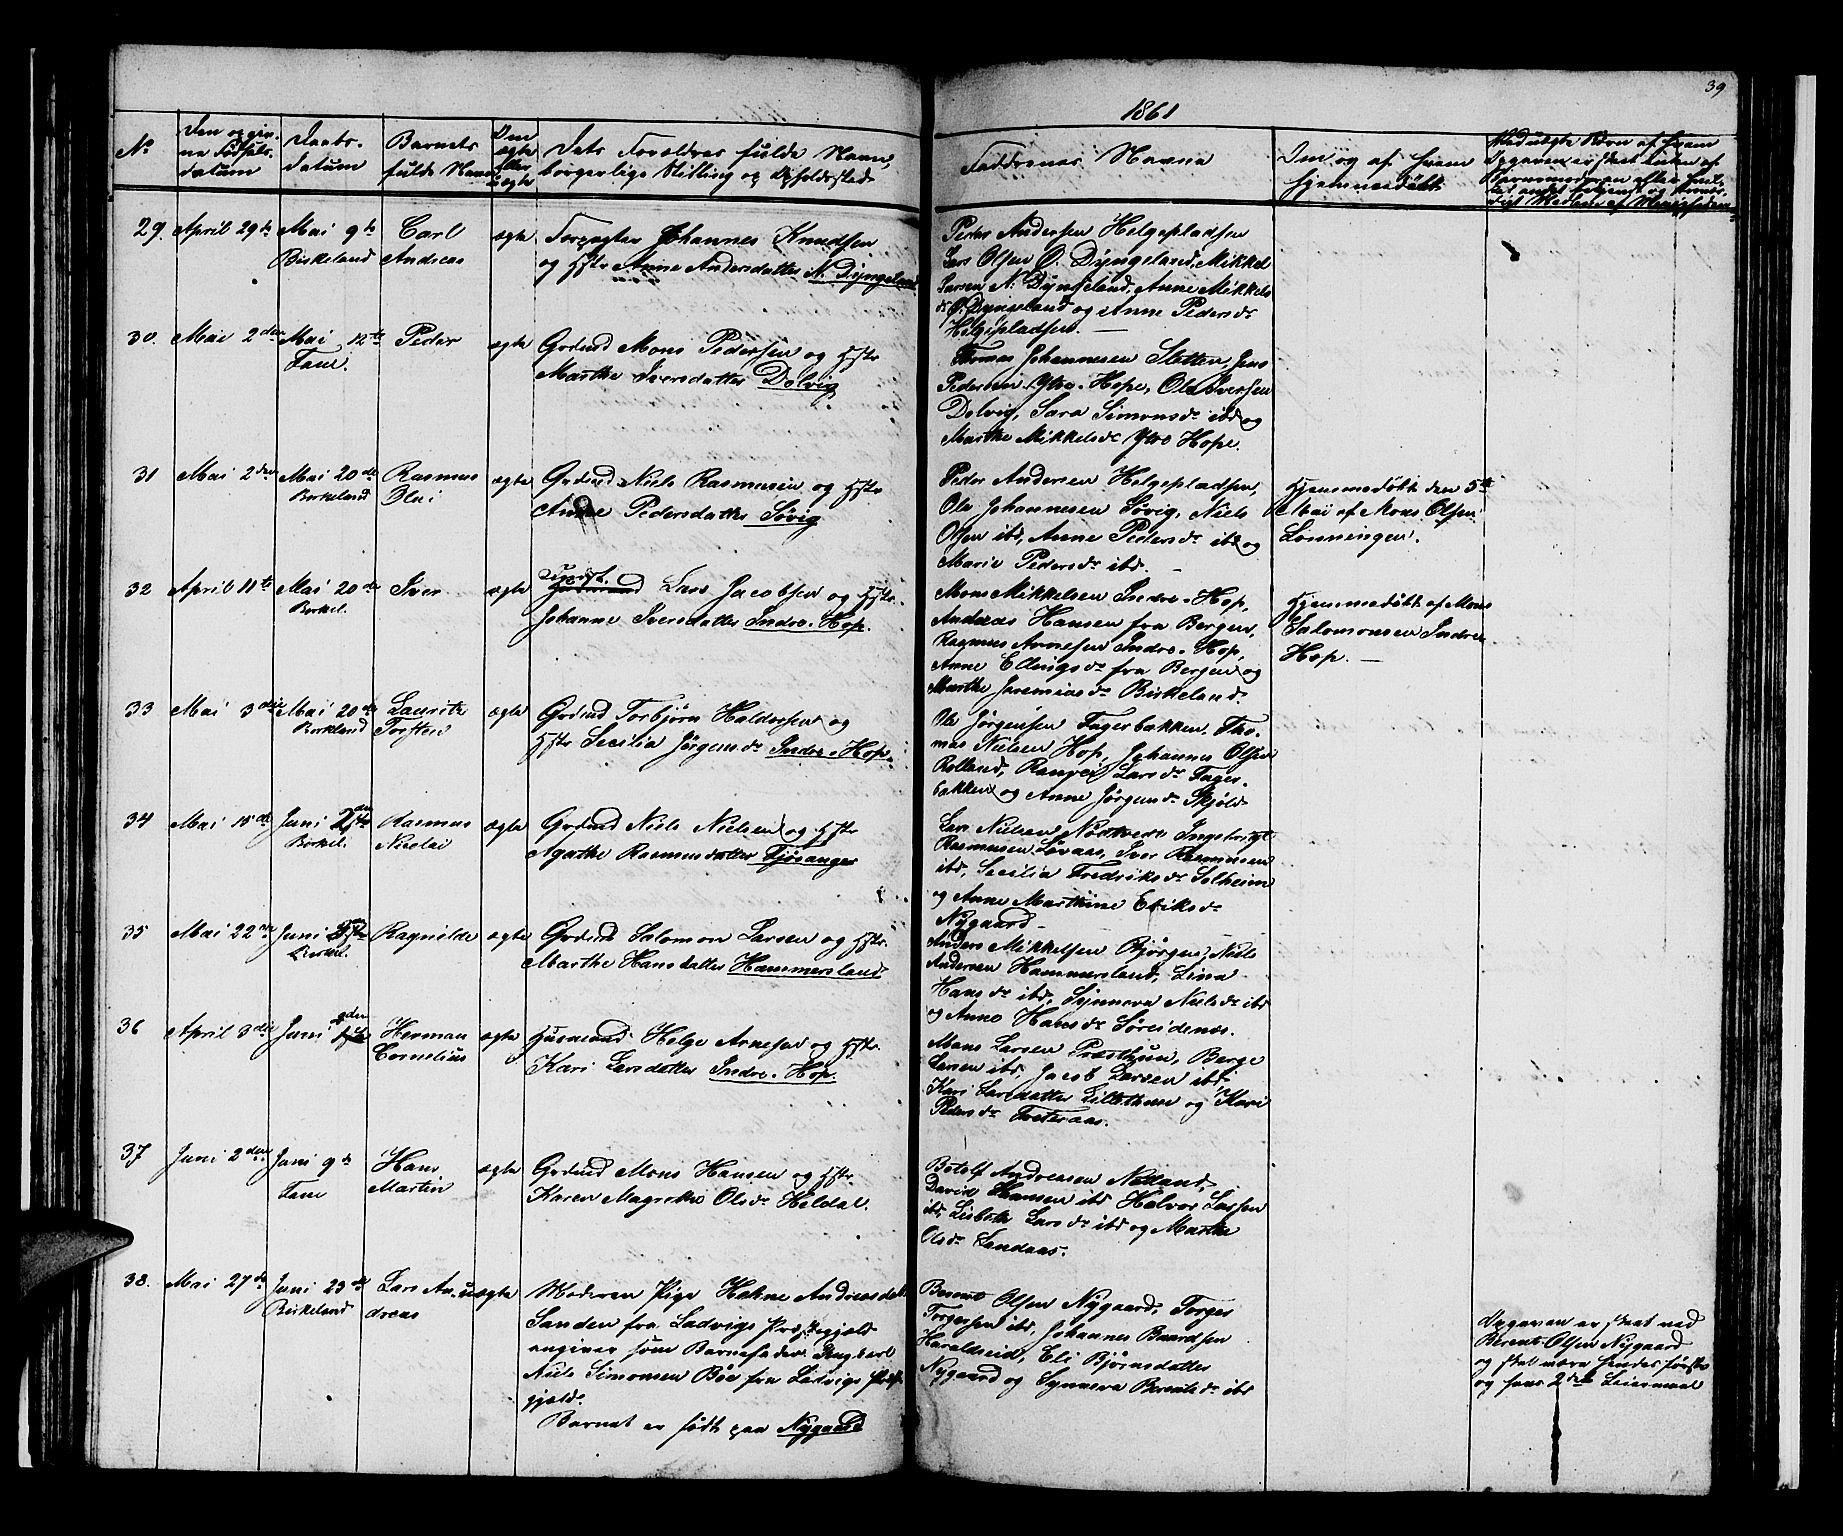 39
1861
No
Den opgiv-
ne Fødsels-
datum
Daabs-
datum
Barnets
fulde Navn
Om
ægte
eller
uægte
Dets Forældres fulde Navn,
borgerlige Stilling og Opholdssted
Faddrenes Navne
Om og af hvem
hjemmedøbt
29. April 29de Mai 9de Carl ægte Forpagter Johannes Knudsen
Birkeland Andreas og Hstr Anne Andersdatter N. Dyngeland
Peder Andersen Helgepladsen
Lars Olsen Ø. Dyngeland, Mikkel
Larsen N. Dyngeland, Anne Mikkels
dr Ø. Dyngeland og Anne Pedersdr
Helgepladsen. —
30. Mai 2den Mai 12te Peder ægte Grdmd Mons Pedersen og Hstr
Fane. Marthe Iversdatter Dolvig
Thomas Johannesen Sletten, Jens
Pedersen Ytre-Hope, Ole Iversen
Dolvig, Sara Simonsdr ibd og
Marthe Mikkelsdr Ytre Hope.
31 Mai 2den Mai 20de Rasmus ægte Grdmd Niels Rasmussen og Hstr
Birkeland Olai Anne Pedersdatter Søvig
Peder Andersen Helgepladsen,
Ole Johannesen Søvig, Niels
Olsen ibd, Anne Pedersdr ibd og
Marie Pedersdr ibd. —
Hjemmedøbt den 5te
Mai af Mons Olsen
Lønningen.
32 April 11te Mai 20de Iver ægte Lars Jacobsen og Hstr.
Birkel. Johanne Iversdatter Indre-Hop.
Mons Mikkelsen Indre-Hop,
Andreas Hansen fra Bergen,
Rasmus Arnesen Indre-Hop,
Anne Ellingsdr fra Bergen og
Marthe Jeremiasdr Birkeland.
Hjemmedøbt af Mons
Salomonsen Indre
Hop. —
33 Mai 3die Mai 20de Lauritz ægte Grdmd Torbjørn Haldorsen og
Birkeland Torsten Hstr Secilia Jørgensdr Indre-Hop.
Ole Jørgensen Fagerbakken, Tho-
mas Nielsen Hop, Johannes Olsen
Rolland, Rangei Larsdr Fager-
bakken og Anne Jørgensdr Skjold
34 Mai 15de Juni 2den Rasmus ægte Grdmd Niels Nielsen og Hstr
Birkel. Nicolai Agathe Rasmusdatter Fjøsanger
Lars Nielsen Nødtvedt, Ingebrigt
Rasmussen Løvaas, Iver Rasmussen
ibd, Secilia Fredriksdr Solheim
og Anne Marthine Eriksdr
Nygaard —
35 Mai 22de Juni Ragnilde ægte Grdmd Salomon Larsen og Hstr.
Birkel. Marthe Hansdatter Hammersland
Anders Mikkelsen Bjørgen, Niels
Andersen Hammersland, Lina
Hansdr ibd, Synneva Nielsdr ibd
og Anne Hansdr Søreidenes.
36 April 3die Juni 9den Herman ægte Husmand Helge Arnesen og Hstr.
Cornelius Kari Larsdatter Indre-Hop.
Mons Larsen Præsthun, Berge
Larsen ibd Jacob Larsen ibd
Kari Larsdatter Lillethun og Kari
Pedersdr Tveteraas.
37 Juni 2den Juni 9de Hans ægte Grdmd Mons Hansen og Hstr
Fane Martin Karen Magrethe Olsdr Heldal.
Botolf Andreasen Natland,
David Hansen ibd Halvor Larsen
ibd, Lisbeth Larsdr ibd og Marthe
Olsdr Sandaas.
38. Mai 27de Juni 23de Lars An- uægte Moderen Pige Hakne Andreasdatt
Birkeland dreas Sanden fra Ladvigs Præstegjeld
angiver som Barnefader Ungkarl
Niels Simonsen Bøe fra Ladvigs Præste-
gjeld.
Barnet er født paa Nygaard
Berent Olsen Nygaard, Torger
Torgersen ibd, Johannes Baardsen
Haraldseid, Eli Bjørnsdatter
Nygaard og Synneva Berntsdr ibd
Opgaven er skeet ved
Berent Olsen Nygaard
og skal være hendes første
og hans 2det Leiermaal